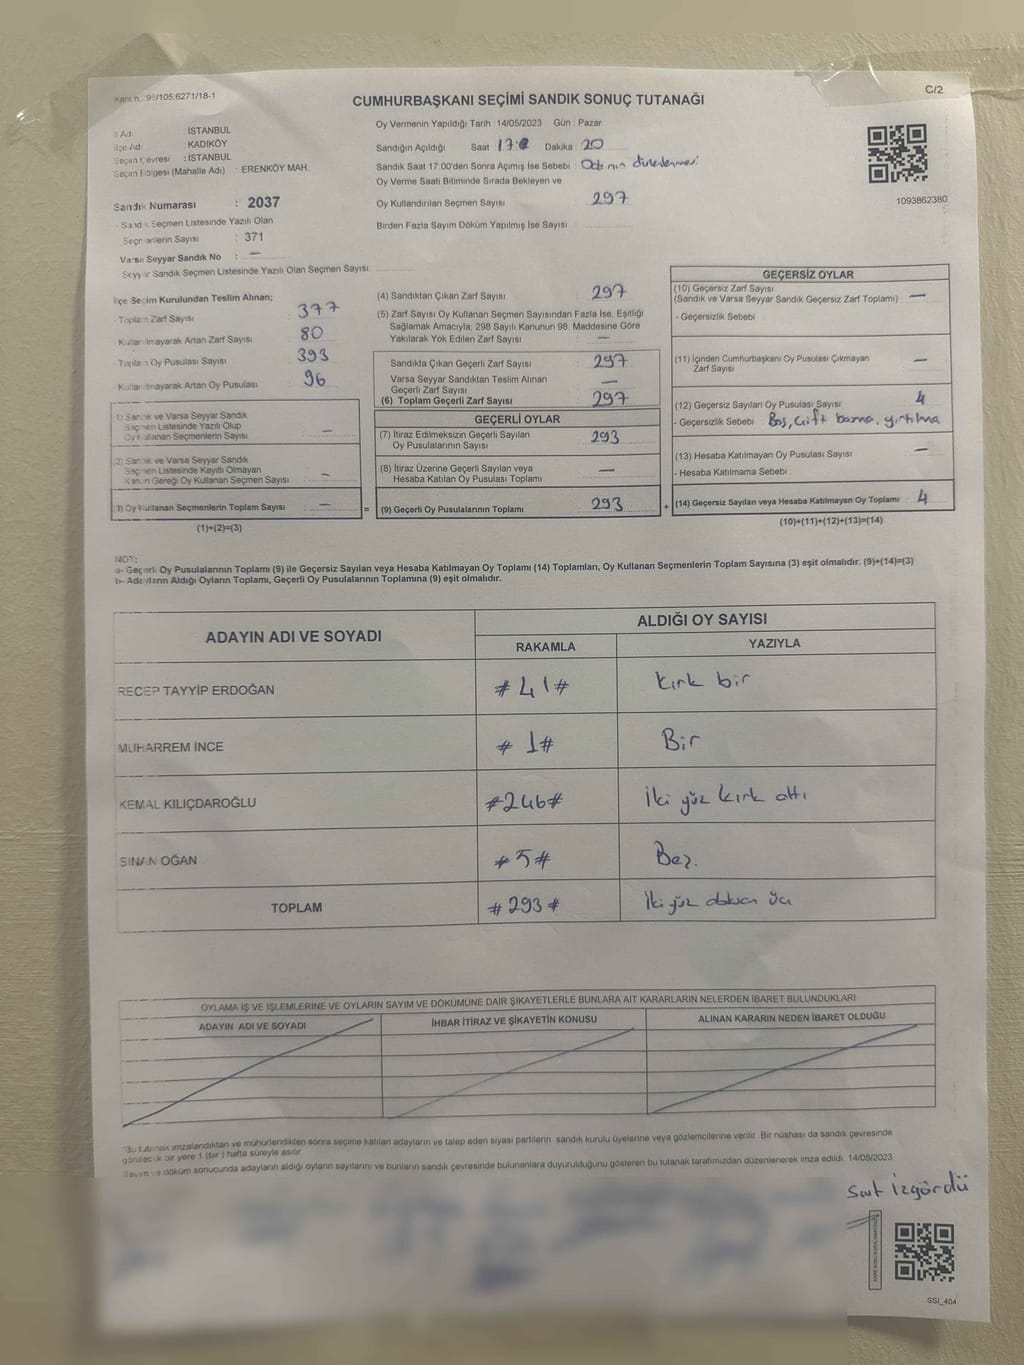 98/105:6271/18-1
C/2
CUMHURBAŞKANI SEÇİMİ SANDIK SONUÇ TUTANAĞI
İl Adı : İSTANBUL
İlçe Adı : KADIKÖY
Seçim Çevresi : İSTANBUL
Seçim Bölgesi (Mahalle Adı) : ERENKÖY MAH.
Oy Vermenin Yapıldığı Tarih : 14/05/2023 Gün : Pazar
Sandığın Açıldığı Saat : 17: Dakika : 20
Sandık Saat 17:00'den Sonra Açımış İse Sebebi :
Oy Verme Saati Bitiminde Sırada Bekleyen ve
Oy Kullandırılan Seçmen Sayısı : 297
Birden Fazla Sayım Döküm Yapılmış İse Sayısı :
1093862380
Sandık Numarası : 2037
Sandık Seçmen Listesinde Yazılı Olan
Seçmenlerin Sayısı : 371
Varsa Seyyar Sandık No : —
Seyyar Sandık Seçmen Listesinde Yazılı Olan Seçmen Sayısı:
İlçe Seçim Kurulundan Teslim Alınan;
Toplam Zarf Sayısı : 377
Kullanılmayarak Artan Zarf Sayısı : 80
Toplam Oy Pusulası Sayısı : 393
Kullanılmayarak Artan Oy Pusulası : 96
1) Sandık ve Varsa Seyyar Sandık
Seçmen Listesinde Yazılı Olup
Oy Kullanan Seçmenlerin Sayısı : —
(2) Sandık ve Varsa Seyyar Sandık
Seçmen Listesinde Kayıtlı Olmayan
Kanun Gereği Oy Kullanan Seçmen Sayısı : —
(3) Oy Kullanan Seçmenlerin Toplam Sayısı : —
(1)+(2)=(3)
=
(4) Sandıktan Çıkan Zarf Sayısı : 297
(5) Zarf Sayısı Oy Kullanan Seçmen Sayısından Fazla İse, Eşitliği
Sağlamak Amacıyla; 298 Sayılı Kanunun 98. Maddesine Göre
Yakılarak Yok Edilen Zarf Sayısı : —
Sandıkta Çıkan Geçerli Zarf Sayısı : 297
Varsa Seyyar Sandıktan Teslim Alınan
Geçerli Zarf Sayısı : —
(6) Toplam Geçerli Zarf Sayısı : 297
GEÇERLİ OYLAR
(7) İtiraz Edilmeksizin Geçerli Sayılan
Oy Pusulasının Sayısı : 293
(8) İtiraz Üzerine Geçerli Sayılan veya
Hesaba Katılan Oy Pusulası Toplamı : —
(9) Geçerli Oy Pusulalarının Toplamı : 293
+
GEÇERSİZ OYLAR
(10) Geçersiz Zarf Sayısı
(Sandık ve Varsa Seyyar Sandık Geçersiz Zarf Toplamı) : —
- Geçersizlik Sebebi :
(11) İçinden Cumhurbaşkanı Oy Pusulası Çıkmayan
Zarf Sayısı : —
(12) Geçersiz Sayılan Oy Pusulası Sayısı : 4
- Geçersizlik Sebebi : Boş, Çift basma, yırtılma
(13) Hesaba Katılmayan Oy Pusulası Sayısı : —
- Hesaba Katılmama Sebebi :
(14) Geçersiz Sayılan veya Hesaba Katılmayan Oy Toplamı : 4
(10)+(11)+(12)+(13)=(14)
NOT:
a- Geçerli Oy Pusulalarının Toplamı (9) ile Geçersiz Sayılan veya Hesaba Katılmayan Oy Toplamı (14) Toplamları, Oy Kullanan Seçmenlerin Toplam Sayısına (3) eşit olmalıdır. (9)+(14)=(3)
b- Adayların Aldığı Oyların Toplamı, Geçerli Oy Pusulalarının Toplamına (9) eşit olmalıdır.
ADAYIN ADI VE SOYADI ALDIĞI OY SAYISI
RAKAMLA YAZIYLA
RECEP TAYYİP ERDOĞAN #41# Kırk bir
MUHARREM İNCE #1# Bir
KEMAL KILIÇDAROĞLU #246# İki yüz kırk altı
SİNAN OĞAN #5# Beş.
TOPLAM #293# İki yüz doksan üç
OYLAMA İŞ VE İŞLEMLERİNE VE OYLARIN SAYIM VE DÖKÜMÜNE DAİR ŞİKAYETLERLE BUNLARA AİT KARARLARIN NELERDEN İBARET BULUNDUKLARI
ADAYIN ADI VE SOYADI İHBAR İTİRAZ VE ŞİKAYETİN KONUSU ALINAN KARARIN NEDEN İBARET OLDUĞU
Bu tutanak imzalandıktan ve mühürlendikten sonra seçime katılan adayların ve talep eden siyasi partilerin sandık kurulu üyelerine veya gözlemcilerine verilir. Bir nüshası da sandık çevresinde
görülecek bir yere 1 (bir) hafta süreyle asılır.
Sayım ve döküm sonucunda adayların aldığı oyların sayılarını ve bunların sandık çevresinde bulunanlara duyurulduğunu gösteren bu tutanak tarafımızdan düzenlenerek imza edildi. 14/05/2023
İzgördü
SSI_404